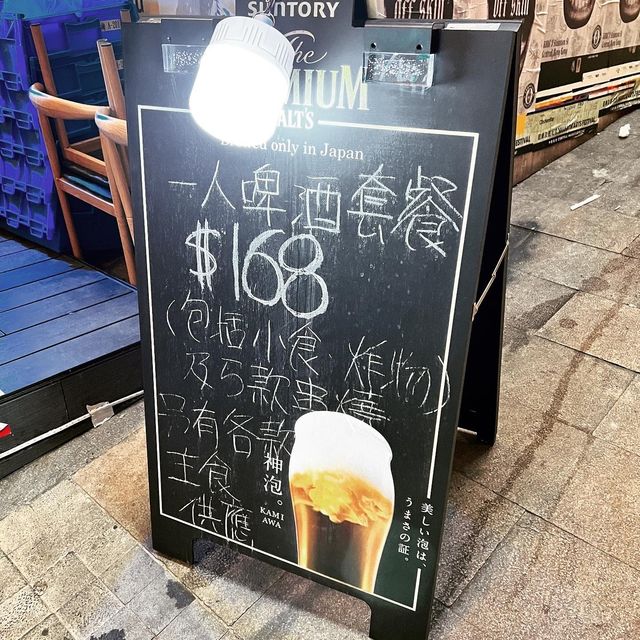 SUNTORY
The
PREMIUM
MALT'S
Brewed only in Japan
一人啤酒套餐
$168
(包括小食、炸物
及5款串燒)
另有各款
主食
供應
神泡。
KAMI
AWA
美しい泡は、
うまさの証。